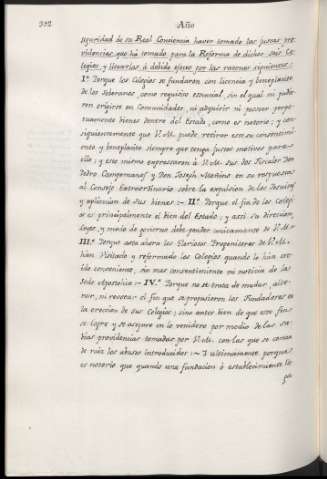 392 Año
seguridad de su Real Conciencia haver tomado las justas pro-
videncias que há tomado para la Reforma de dichos seis Co-
legios, y llevarlas á debido efecto por las razones siguientes:
I.ª Porque los Colegios se fundaron con licencia y beneplacito
de los soberanos como requisito esencial, sin el qual ni pudie-
ron erigirse en Comunidades, ni adquirir ni poseer perpe-
tuamente bienes dentro del Estado, como es notorio; y con-
siguientemente que V.M. puede retirar ese su consentimi-
ento y beneplacito siempre que tenga justos motivos para
ello; y eso mismo expresaron á V.M. sus dos Fiscales Don
Pedro Campomanes y Don Joseph Moñino en su respuesta
al Consejo Extraordinario sobre la expulsion de los Jesuitas
y aplicacion de sus bienes :~ II.ª Porque el fin de los Colegi-
os es principalmente el bien del Estado; y assi su direccion,
leyes, y modo de govierno debe pender unicamente de V.M.
III.ª Porque asta ahora los Gloriosos Progenitores de V.M.
han Visitado y reformado los Colegios quando lo han cre-
ido conveniente, sin mas consentimiento ni noticia de la
Sede Apostolica :~ IV.ª Porque no se trata de mudar, alte-
rar, ni revocar el fin que se propusieron los Fundadores en
la ereccion de sus Colegios; sino antes bien de que este fin
se logre y se asegure en lo venidero por medio de las sa-
bias providencias tomadas por V.M. con las que se cortan
de raiz los abusos introducidos :~ Y ultimamente porque
es notorio que quando una fundacion ó establecimiento lle-
ga